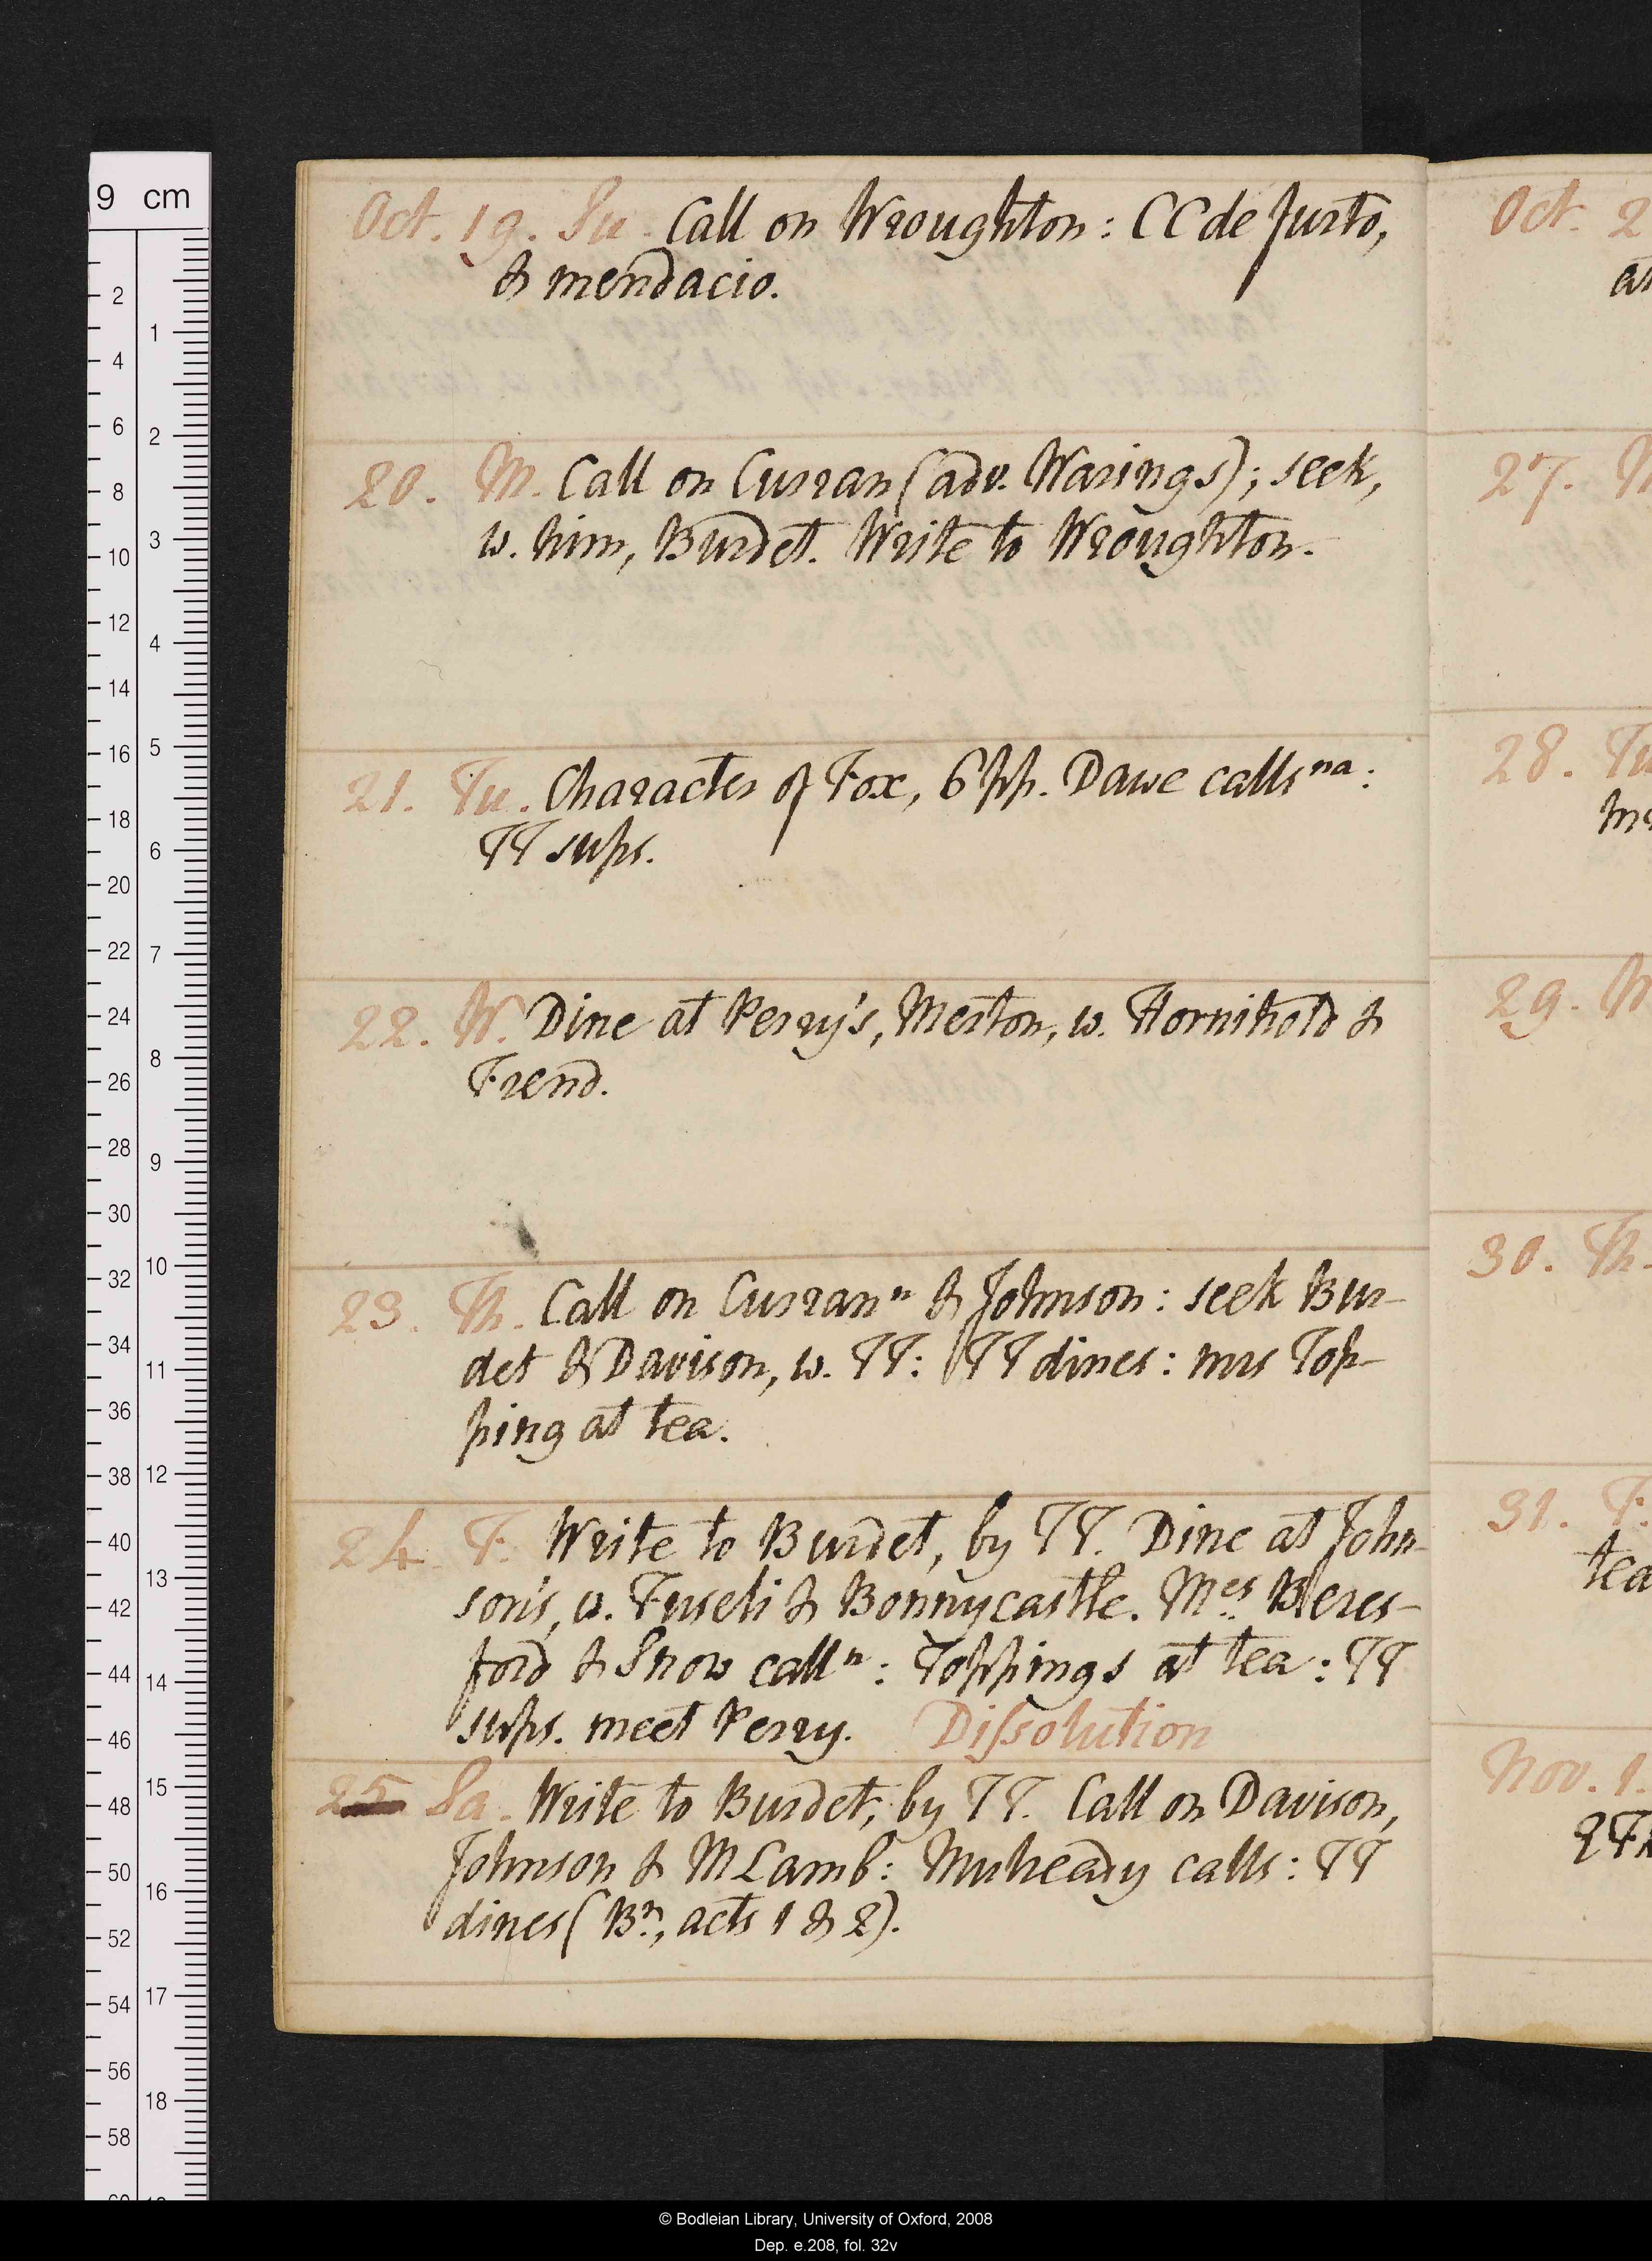 9 cm
Oct. 19. Su. Call on Wroughton: CC de Justo,
& mendacio.
20. M. Call on Curran (adv. Warings); seek,
w. him, Burdet. Write to Wroughton.
21. Tu. Character of Fox, 6 pp. Dawe calls na:
TT sups.
22. W. Dine at Perry's, Merton, w. Hornihold &
Frend.
23. Th. Call on Curran n & Johnson: seek Bur-
det & Davison, w. TT: TT dines: mrs Top-
ping at tea.
24. F. Write to Burdet, by TT. Dine at John-
son's, w. Fuseli & Bonnycastle. Mes Beres-
ford & Snow call n: Toppings at tea: TT
sups. meet Perry. Dissolution
25 Sa. Write to Burdet, by TT. Call on Davison,
Johnson & M Lamb: Mulheady calls: TT
dines (Bn, acts 1 & 2).
Oct. 2
27. M
28. Tu
29. W
30. Th.
31. F.
tea
Nov. 1.
© Bodleian Library, University of Oxford, 2008
Dep. e.208, fol. 32v